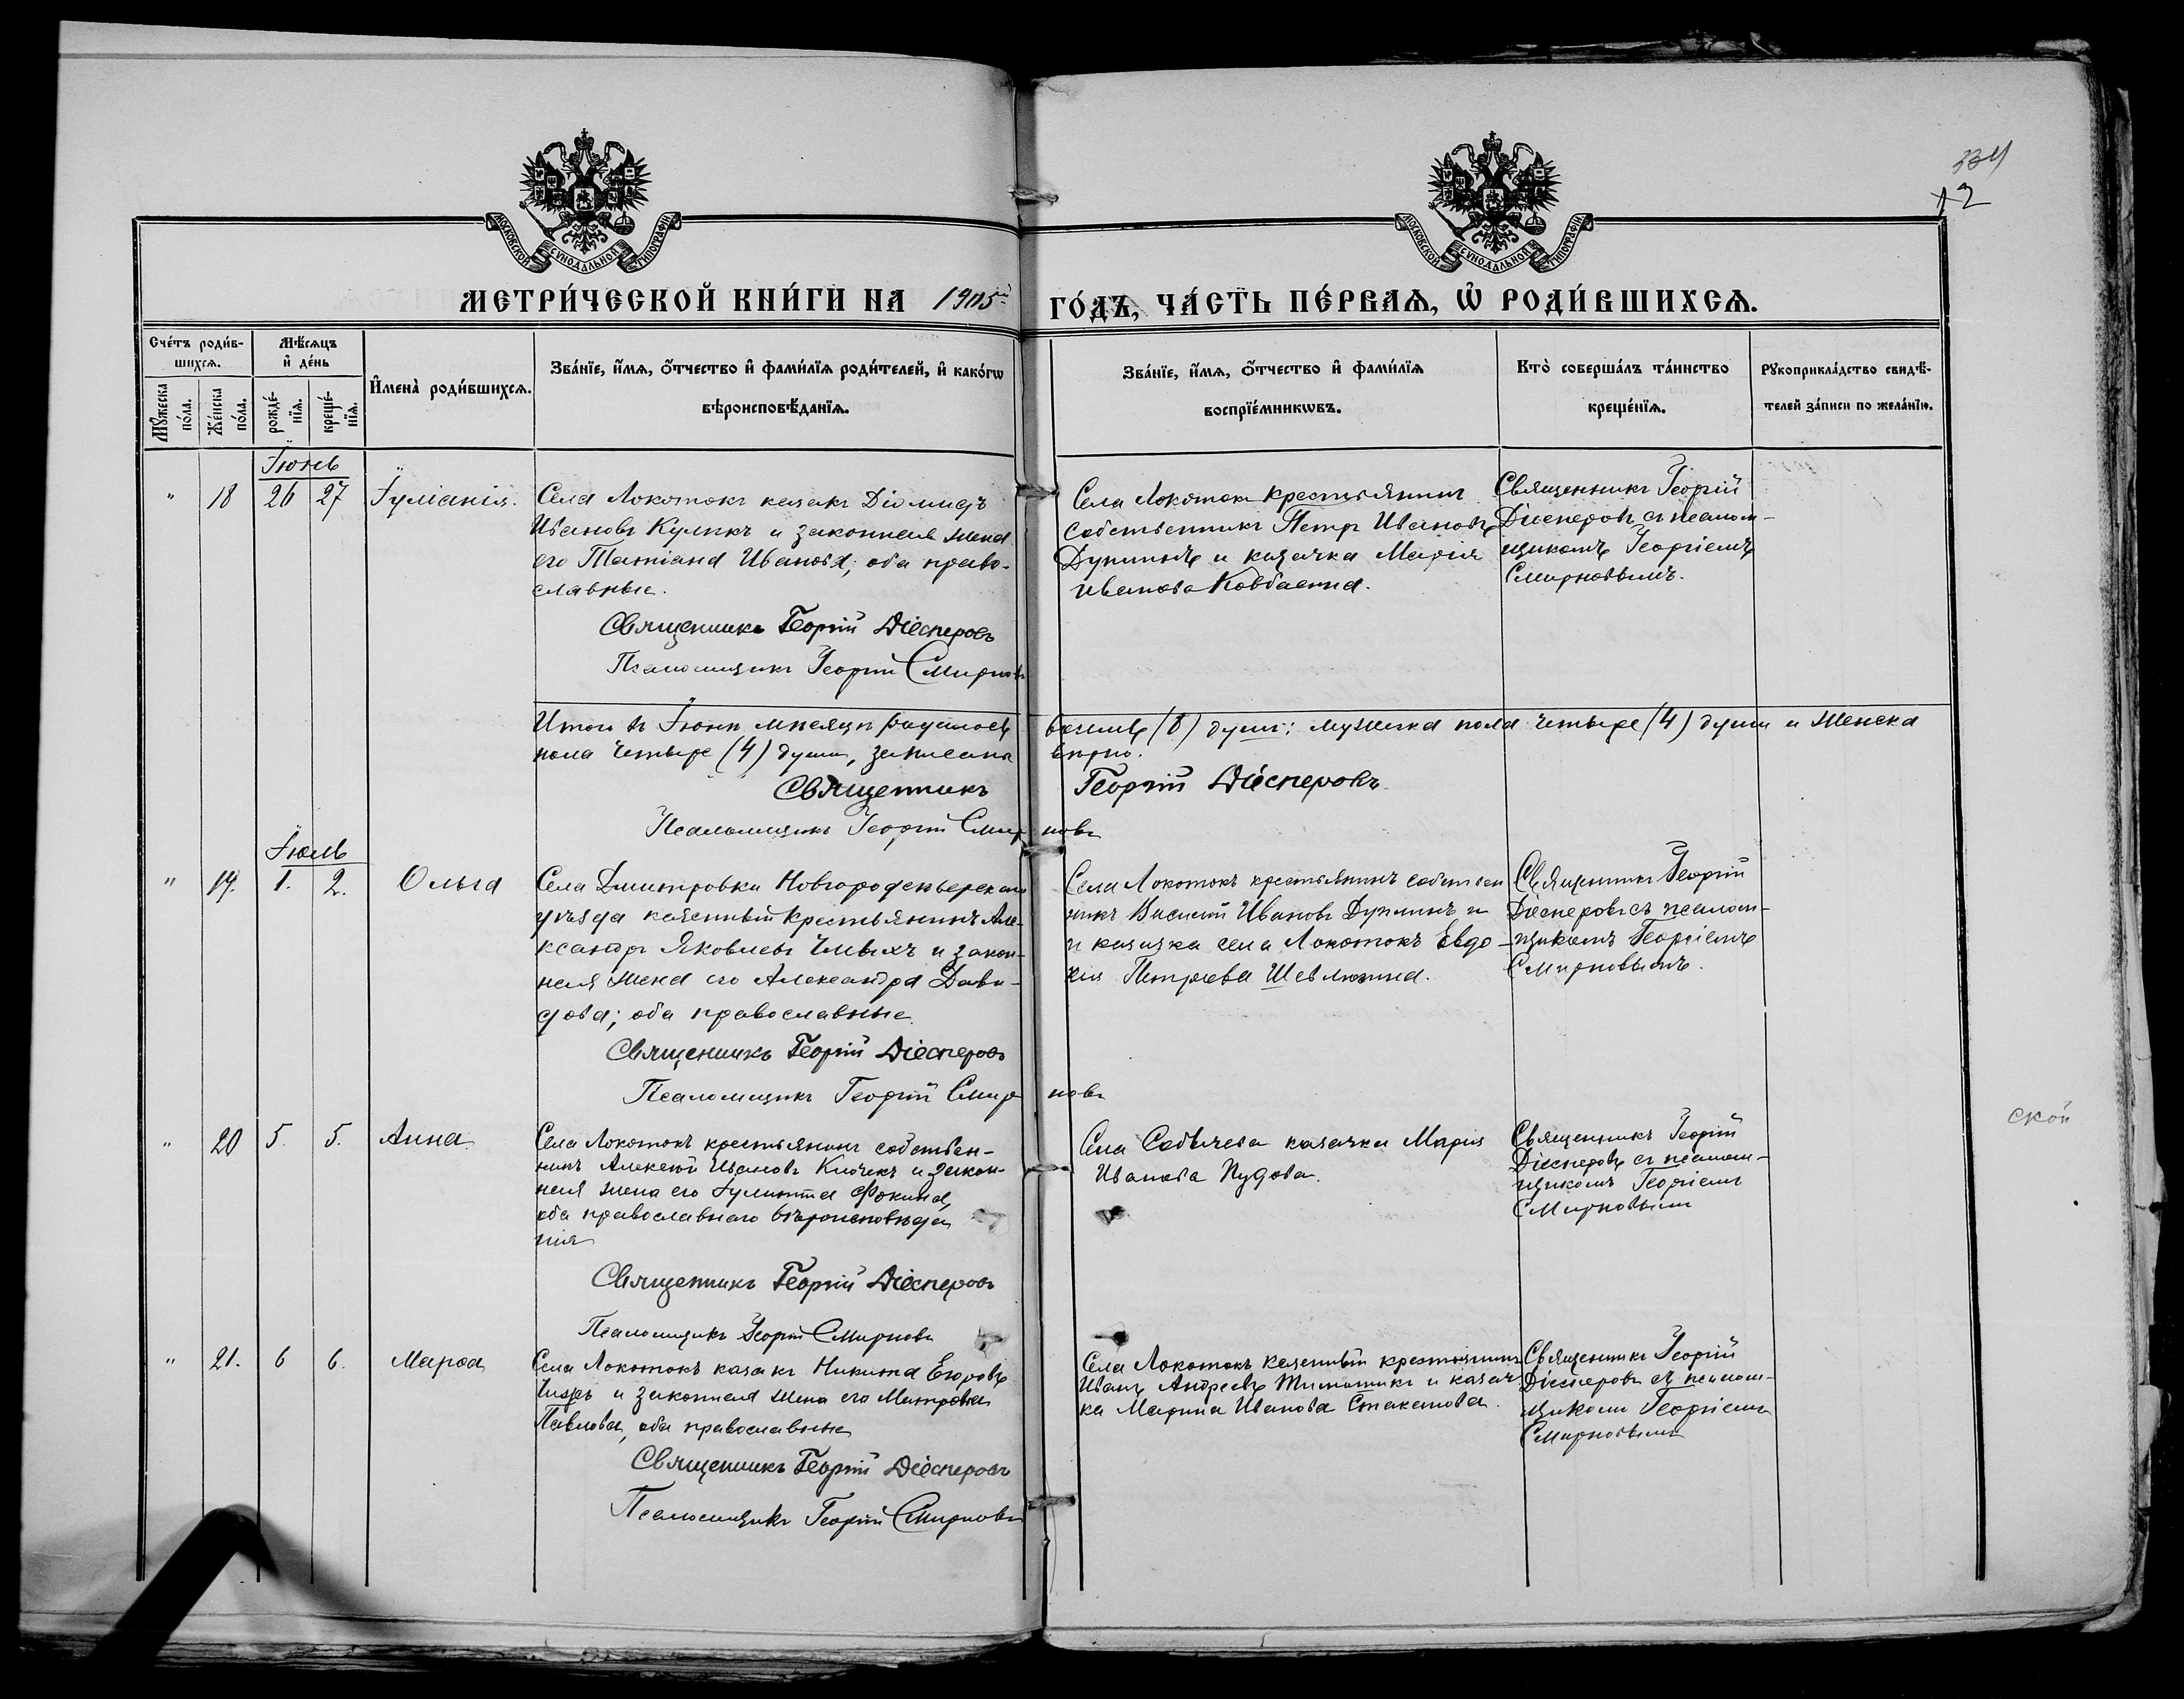 334
12
МОСКОВСКОЙ СѴНОДАЛЬНОЙ ТИПОГРАФІИ
МОСКОВСКОЙ СѴНОДАЛЬНОЙ ТИПОГРАФІИ
МЕТРИ́ЧЕСКОЙ КНИ́ГИ НА 1905й ГО́ДЪ, ЧА́СТЬ ПЕ́РВАѦ, Ѡ҆ РОДИ́ВШИХСѦ.
Сче́тъ роди́в-
шихсѧ.
Мꙋ́жеска по́ла.
Же́нска по́ла.
Мѣ́сяцъ
и҆ де́нь
рожде́-нїѧ.
креще́-нїѧ.
И҆мена̀ роди́вшихсѧ.
Зва́нїе, и҆́мѧ, ѻ҆́тчество и҆ фами́лїѧ роди́телей, и҆ како́гѡ
вѣроисповѣ́данїѧ.
Зва́нїе, и҆́мѧ, ѻ҆́тчество и҆ фами́лїѧ
воспрїе́мникѡвъ.
Кто̀ соверша́лъ та́инство
креще́нїѧ.
Рꙋкоприкла́дство свидѣ́-
телей за́писи по жела́нїю.
Іюнь
" 18 26 27 Іуліанія.
Села Локотокъ казакъ Діомидъ
Ивановъ Куликъ и законная жена
его Татіана Иванова; оба право-
славные.
Священникъ Георгій Діесперовъ
Псаломщикъ Георгій Смирновъ
Села Локотокъ крестьянинъ
собственникъ Петръ Ивановъ
и казачка Марія
Иванова Ковбасина.
Священникъ Георгій
Діесперовъ съ псалом-
щикомъ Георгіемъ
Смирновымъ.
Итого въ Іюнѣ мѣсяцѣ родилось восемь (8) душъ: мужска пола четыре (4) души и женска
пола четыре (4) души, записано вѣрно.
Священникъ Георгій Діесперовъ.
Псаломщикъ Георгій Смирновъ
Іюль
" 19. 1. 2. Ольга
Села Дмитровки Новгородсѣверскаго
уѣзда казенный крестьянинъ Але-
ксандръ Яковлевъ и закон-
ная жена его Александра Дави-
дова; оба православные
Священникъ Георгій Діесперовъ
Псаломщикъ Георгій Смирновъ
Села Локотокъ крестьянинъ собствен
никъ Василій Ивановъ и
и казачка села Локотокъ Евдо-
кія Петрова
Священникъ Георгій
Діесперовъ съ псалом-
щикомъ Георгіемъ
Смирновымъ.
" 20 5. 5. Анна
Села Локотокъ крестьянинъ собствен-
никъ Алексѣй Ивановъ Клочекъ и закон-
ная жена его Іулитта Фокина,
оба православнаго вѣроисповѣда
нія
Священникъ Георгій Діесперовъ
Псаломщикъ Георгій Смирновъ
Села Собычева казачка Марія
Иванова Пудова.
Священникъ Георгій
Діесперовъ съ псалом-
щикомъ Георгіемъ
Смирновымъ
" 21. 6 6. Марѳа
Села Локотокъ казакъ Никита Егоровъ
и законная жена его Митрова
Павлова, оба православные
Священникъ Георгій Діесперовъ
Псаломщикъ Георгій Смирновъ
Села Локотокъ казенный крестьянинъ
Иванъ Андреевъ и казач
ка Марина Иванова Стаканова.
Священникъ Георгій
Діесперовъ съ псалом-
щикомъ Георгіемъ
Смирновымъ
ской